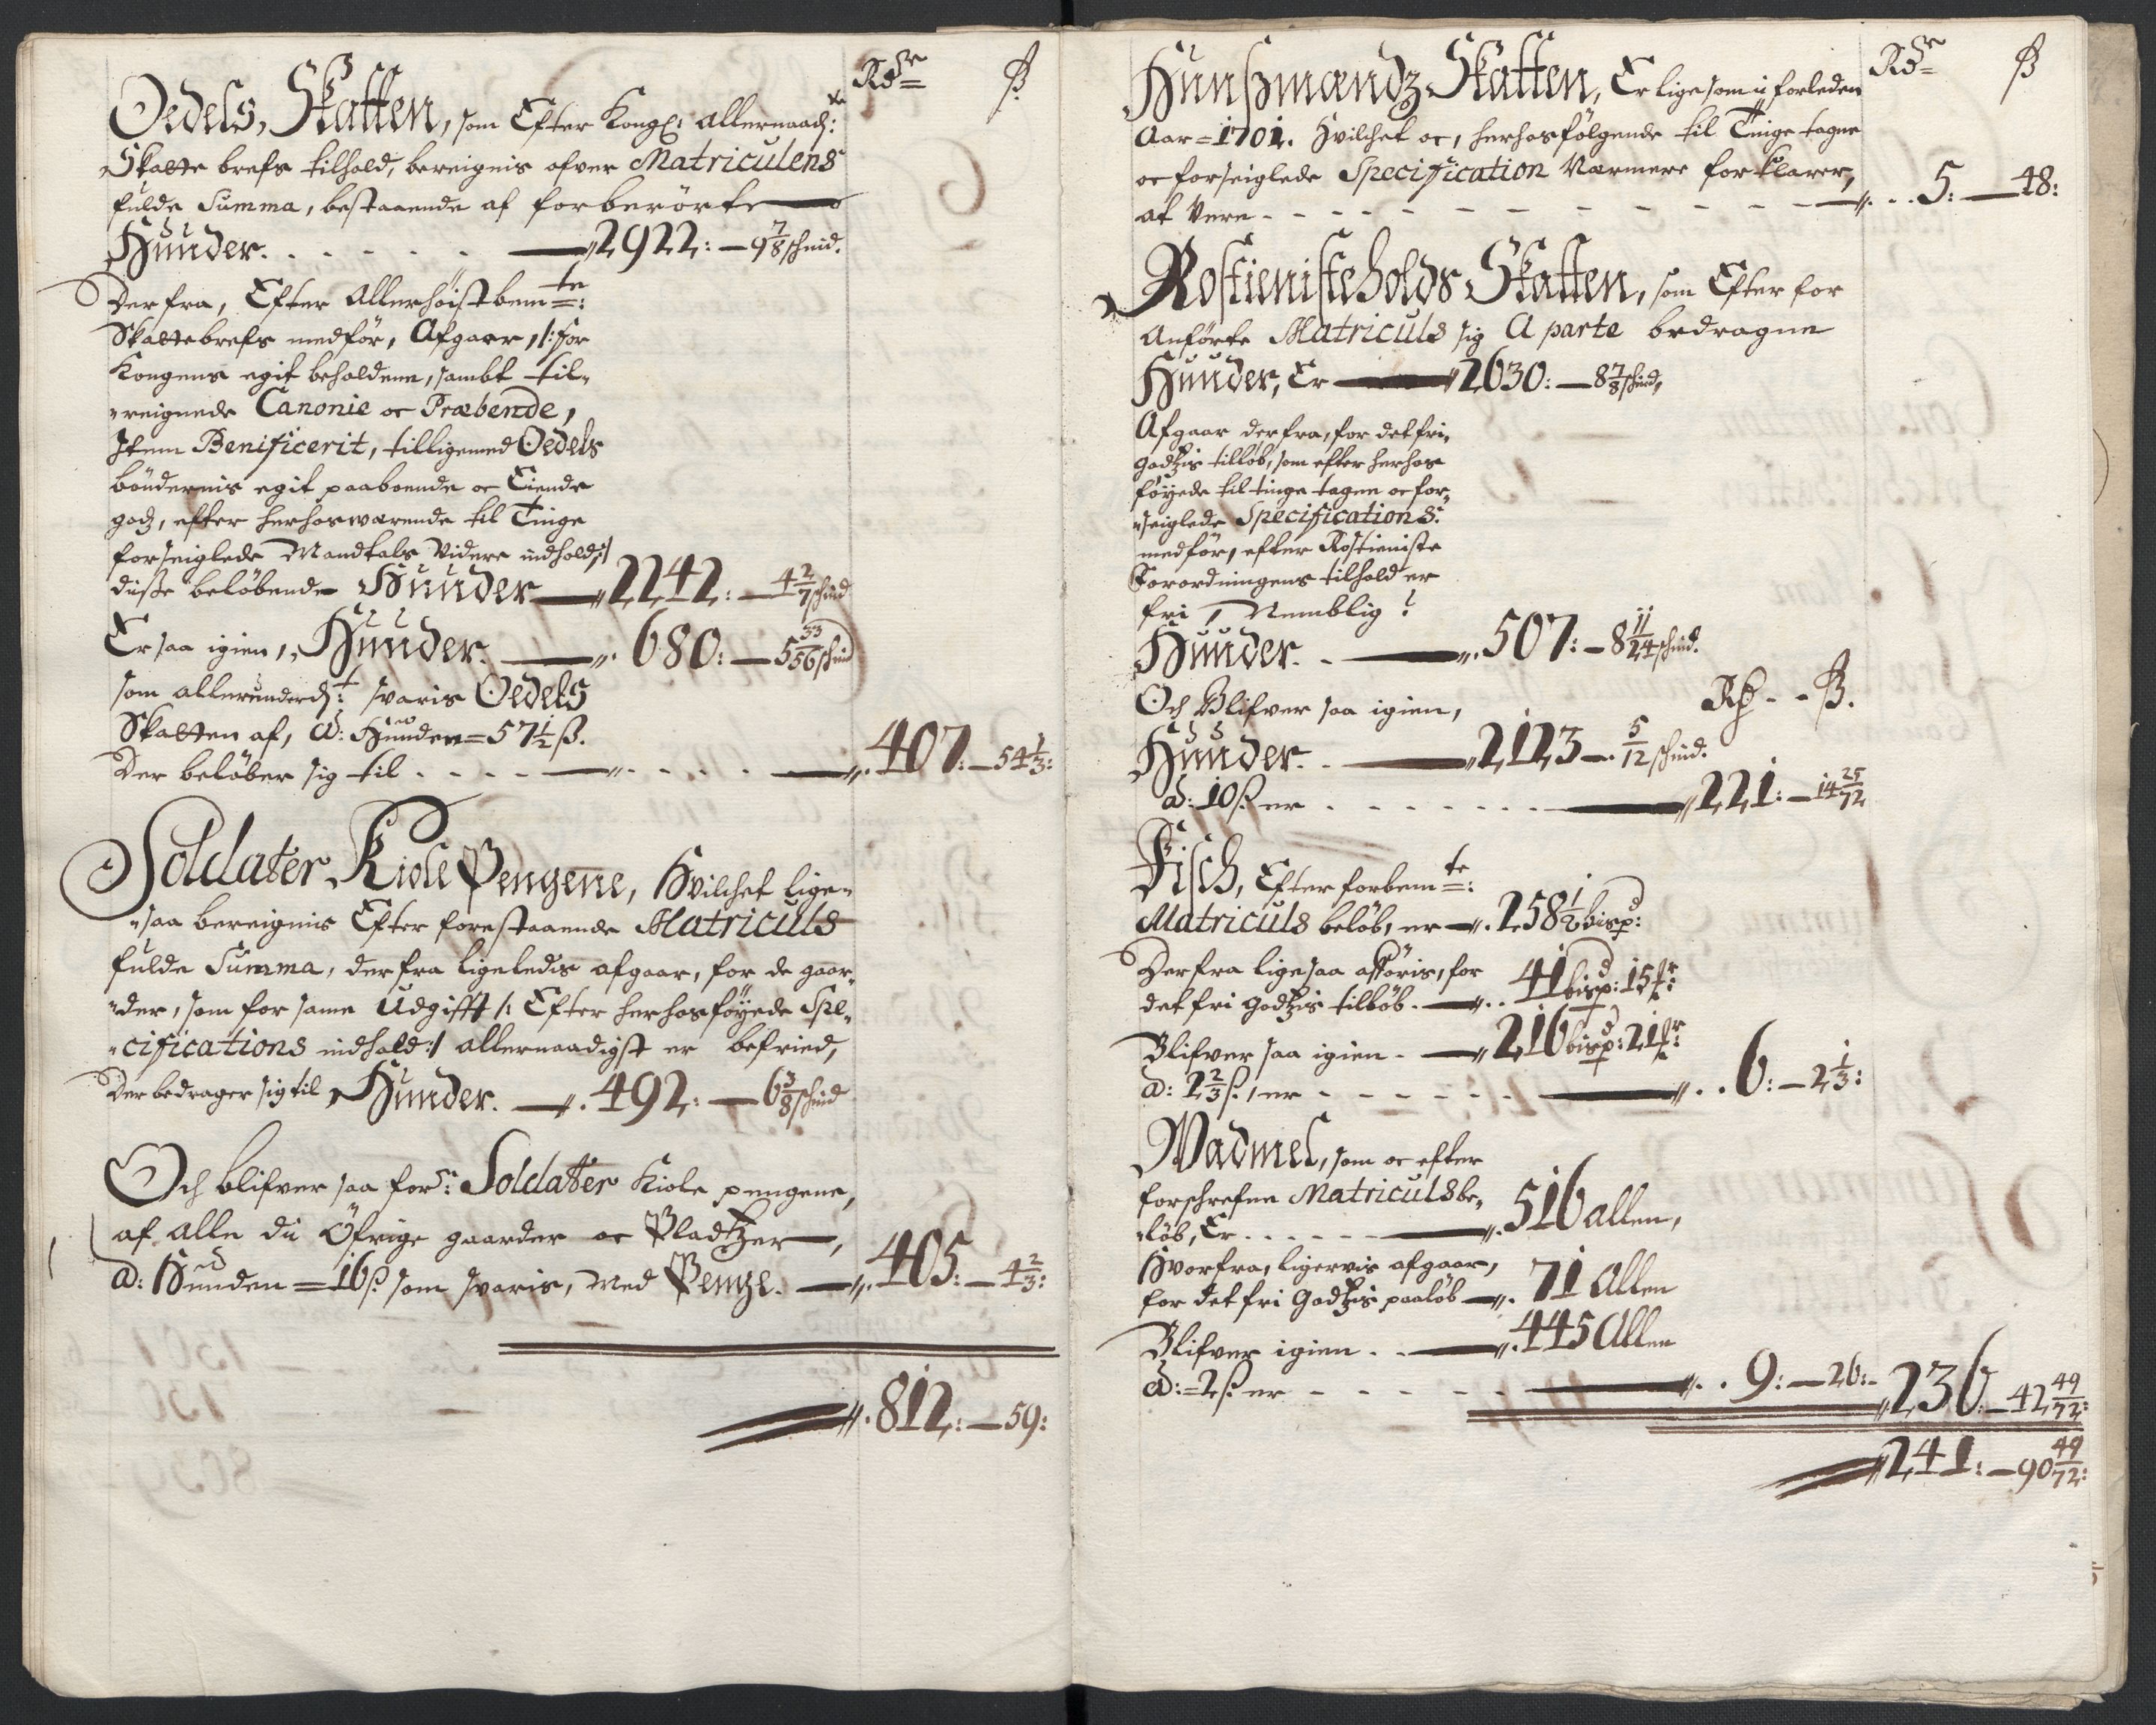 Rdr ß
Oedels, Skatten, som Efter Kongl: allernaad:
Skatte brefs tilhold, bereignis ofver Matriculens
fulde Summa, bestaaende af forberörte
Hunder. . . . . . — 2922: — 9 7/8 schind.
Der fra, Efter Allerhöistbemte:
Skattebrefs medför, Afgaar, /: for
Kongens egit beholdene, sambt til-
reignede Canonie oc Præbende,
Item Beneficerit, tilligemed Oedels
böndernis egit paaboende oc Eiende
godz, efter herhoswærende til Tinge
forseiglede Mandtals Videre indhold :/
diße belöbende Hunder — 2242: — 4 2/7 schind
Er saa igien, Hunder. — 680: — 5 33/56 schind
som allerunderdt: svaris Oedels
Skatten af, á: Hunden = 57 1/2 ß.
Der belöber sig til . . . . — . . . . — 407: — 54 1/3:
Soldater Kiole Pengene, Hvilchet lige-
saa bereignis Efter forestaaende Matriculs
fulde Summa, der fra ligeledis afgaar, for de gaar-
der, som for same Udgifft /: Efter herhosföyede Spe-
cifications indhold :/ allernaadigst er befried,
Der bedrager sig til Hunder. — 492: — 6 3/8 schind
Och blifver saa fors: Soldater Kiole pengene,
af alle di Öfrige gaarder oc Pladtzer —,
á: Hunden = 16 ß som svaris, Med Penge. — 405: — 4 2/3:
812: — 59:
Rdr ß
Hunßmændz Skatten, Er ligesom i forleden
Aar = 1701. Hvilchet oc, herhosfölgende til Tinge tagne
oc forseiglede Specification Nærmere forklarer,
at Vere - - - - - - - - - - - - — . . 5: — 48:
Rostienisteholds Skatten, som Efter for
Anförte Matriculs sig A parte bedragne
Hunder, Er — 2630: — 8 7/8 schind,
Afgaar der fra, for det fri-
godtzis tilløb, som efter herhos
föyede til tinge tagen oc for-
seiglede Specifications
medför, efter Rostieniste
Forordningens tilhold er
fri, Nemblig:
Hunder. . — 507: — 8 11/24 schind.
Och Blifver saa igien, Rd - - ß.
Hunder. . — 2123 — 5/12 schind.
á: 10 ß er . . . . . . . . — 221: — 14 25/72
Fisch, Efter forbemte:
Matriculs belöb, er — 258 1/2 bispd:
Der fra ligesaa afföris, for
det fri godtzis tilløb. — . . 41 bispd: 15 fr:
Blifver saa igien. — 216 bispd: 21 fr:
á: 2 2/3 ß, er - - - - - - — . . 6: — 2 1/3:
Wadmel, som oc efter
forschrefne Matriculs be-
löb, Er. . . . . . — 516 allen,
Hvorfra, ligervis afgaar,
for det fri Godtzis paaløb — 71 Allen
Blifver igien. . — 445 Allen
á: = 2 ß er - - - - — . . 9: — 26: — 236: — 42 49/72:
241: — 90 49/72: